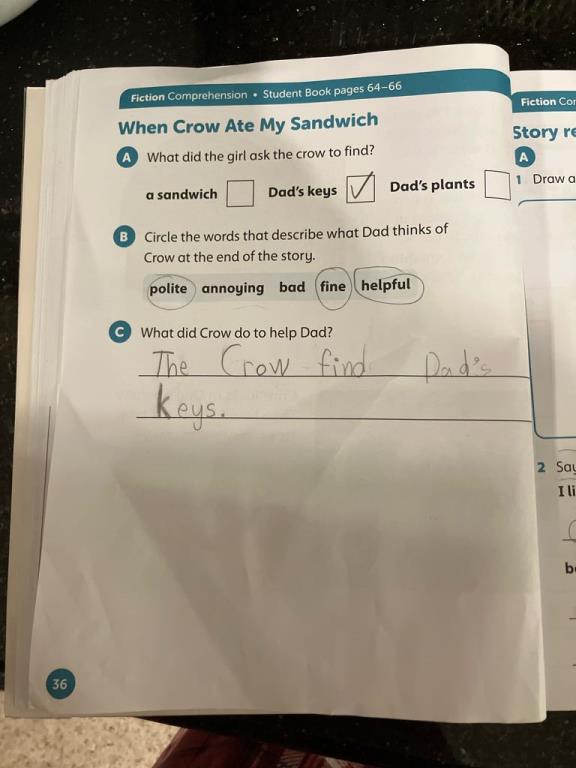 Fiction Comprehension • Student Book pages 64–66
When Crow Ate My Sandwich
A What did the girl ask the crow to find?
a sandwich Dad's keys Dad's plants
B Circle the words that describe what Dad thinks of
Crow at the end of the story.
polite annoying bad fine helpful
C What did Crow do to help Dad?
The Crow find Dad's
keys.
36
Fiction
Story
A
1 Draw a
2 Say
I li